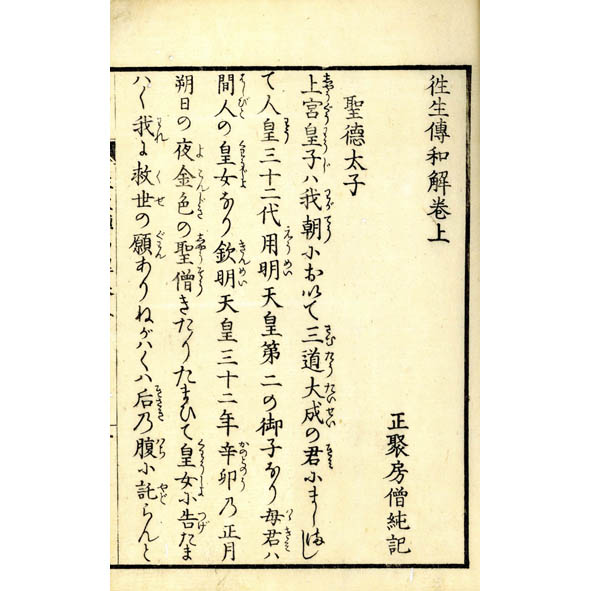 徃生傳和解卷上
正聚房僧純記
聖德太子
上宮皇子ハ我朝小おいて三道大成の君小まします
て人皇三十二代用明天皇第二の御子なり母君ハ
間人の皇女なり欽明天皇三十二年辛卯乃正月
朔日の夜金色の聖僧きたりたまひて皇女小告たま
ハく我よ救世の願ありねがハくハ后乃腹小託らんと